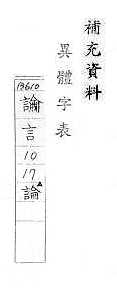 補充資料
異體字表
13610
論
言
10
17
論